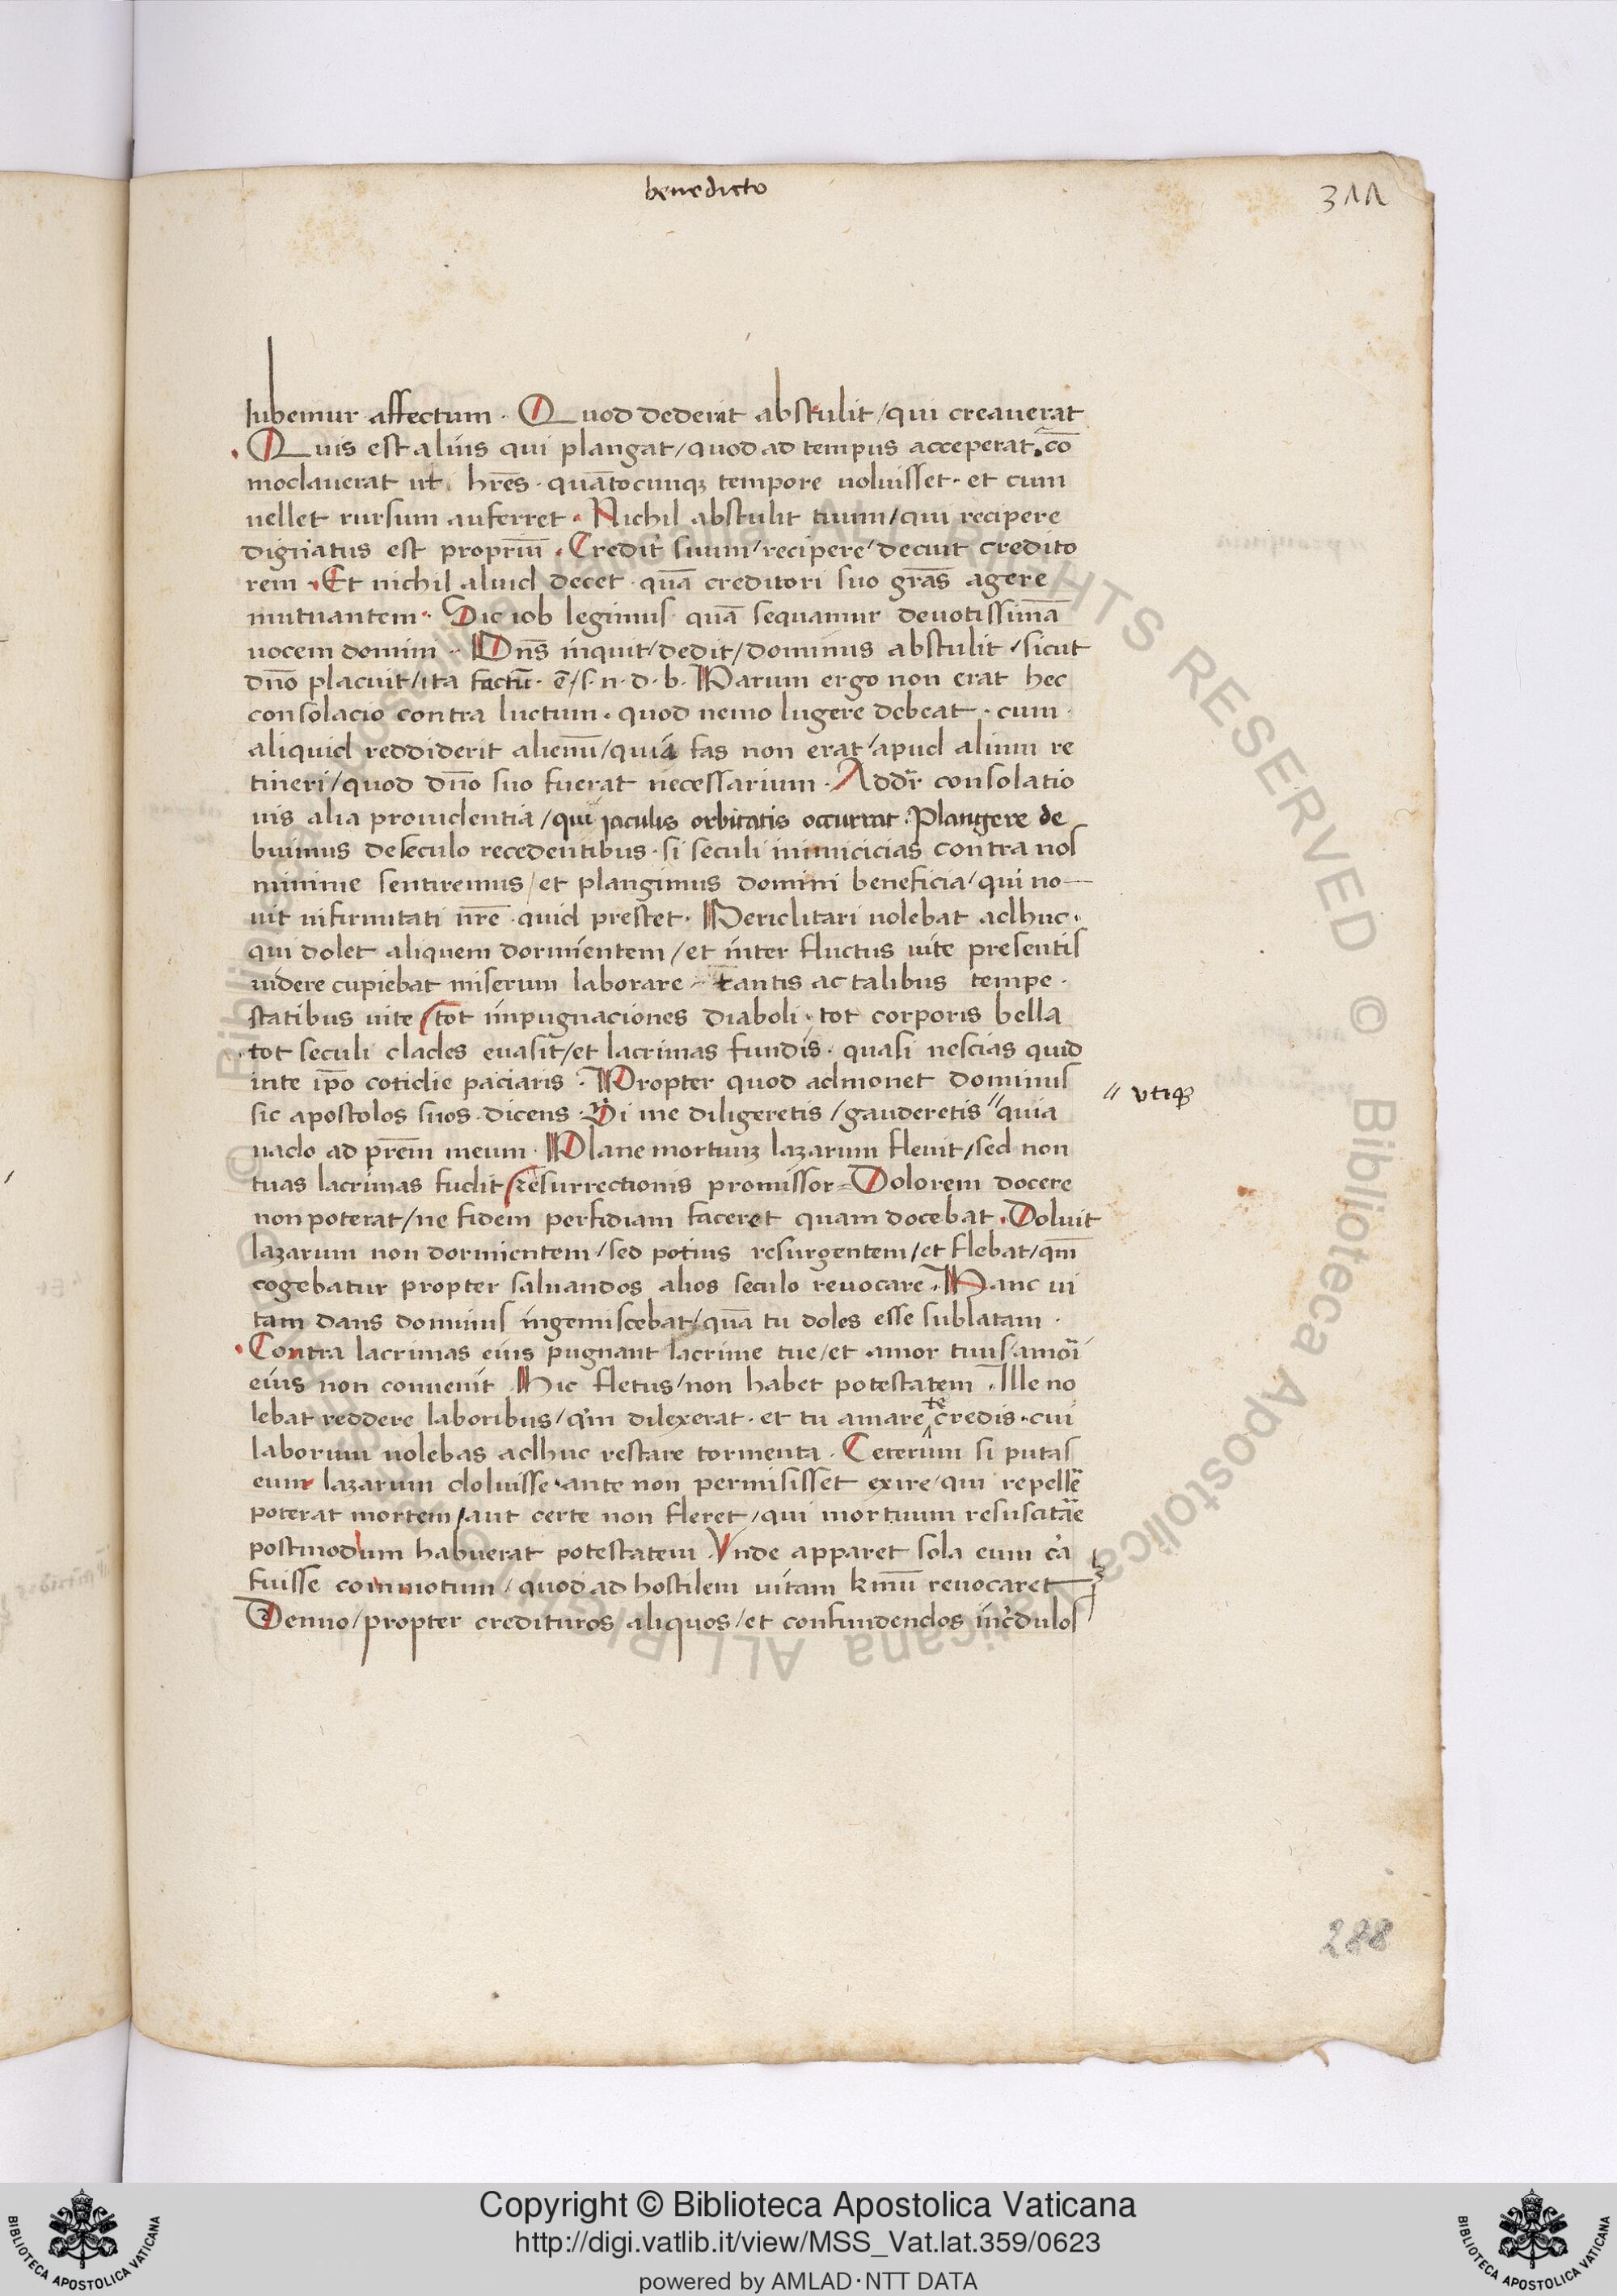 benedicto
311
Iubemur affectum. Quod dederit abstulit / qui creauerat
Quis est alius qui plangat / quod ad tempus acceperat. co͞
modauerat ut hr̄es. quātocunqꝫ tempore uoluisset. et cum
uellet rursum auferret. Nichil abstulit tuum / qui recipere
dignatus est propriū. Credit' suum / recipere / decuit credito
rem. Et nichil aliud decet. quā creditori suo grās agere
mutuantem. Sic iob legimus quā sequamur deuotissimā
uocem domini. Dn̄s inquit / dedit / dominus abstulit / sicut
dn̄o placuit / ita factū. ē / s. n. d. b. Parum ergo non erat hec
consolacio contra luctum. quod nemo lugere debeat. cum
aliquid reddiderit alienū / quia fas non erat / apud alium re
tineri / quod dn̄o suo fuerat necessarium. Addr̄ consolatio
nis alia prouidentia / qui jaculis orbitatis occurrat. Plangere de
buimus de seculo recedentibus. si seculi inimicicias contra nos
minime sentiremus / et plangimus domini beneficia / qui no
uit infirmitati nr̄e. quid prestet. Periclitari uolebat adhuc.
qui dolet aliquem dormientem / et inter fluctus uite presentis
uidere cupiebat miserum laborare. tantis ac talibus tempe.
statibus uite / tot impugnaciones diaboli. tot corporis bella
tot seculi clades euasit / et lacrimas fundis. quasi nescias quid
in te ip̄o cotidie paciaris. Propter quod admonet dominus
sic apostolos suos. dicens. Si me diligeretis / gauderetis // quia
// vtiqꝫ
uado ad pr̄em meum. Plane mortuuꝫ lazarum fleuit / sed non
tuas lacrimas fudit / resurrectionis promissor. Dolorem docere
non poterat / ne fidem perfidiam faceret quam docebat. Doluit
lazarum non dormientem / sed potius resurgentem / et flebat / qm̄
cogebatur propter saluandos alios seculo reuocare. Hanc ui
tam dans dominus ingemiscebat / quā tu doles esse sublatam.
Contra lacrimas eius pugnant lacrime tue / et amor tuus amor̄i
eius non conuenit. Hic fletus / non habet potestatem. Ille no
lebat reddere laboribus / qm dilexerat. et tu amare te credis. cui
laborum uolebas adhuc restare tormenta. Ceterum si putas
eum lazarum doluisse. ante non permisisset exire / qui repell'e
poterat mortem / aut certe non fleret / qui mortuum resuscitār̄e
postmodum habuerat potestatem. Vnde apparet sola eum cā
fuisse commotum / quod ad hostilem uitam kmū reuocaret
Denuo / propter credituros aliquos / et confundendos inc'dulos
288
Copyright © Biblioteca Apostolica Vaticana
http://digi.vatlib.it/view/MSS_Vat.lat.359/0623
powered by AMLAD·NTT DATA